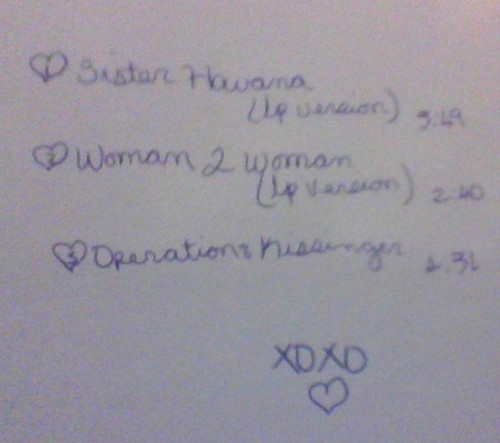 1 Sister Havana
(Lp version) 3:49
2 Woman 2 Woman
(Lp version) 2:40
3 Operation: Kissinger
XOXO